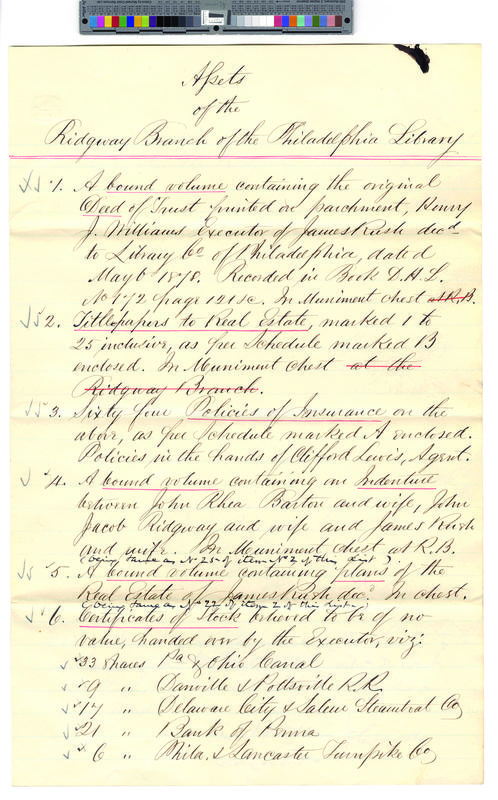 Assets
of the
Ridgway Branch of the Philadelphia Library
1. A bound volume containing the original
Deed of Trust printed on parchment, Henry
J. Williams Executor of James Rush decd
to Library Co of Philadelphia, dated
May 6 1878. Recorded in Book L.A.L.
No 172 page 121 &c. In Muniment chest at R.B.
2. Title papers to Real Estate, marked 1 to
25 inclusive, as per Schedule marked B
enclosed. In Muniment chest at the
Ridgway Branch.
3. Sixty five Policies of Insurance on the
above, as per Schedule marked A enclosed.
Policies in the hands of Clifford Lewis, Agent.
4. A bound volume containing an Indenture
between John Rhea Barton and wife, John
Jacob Ridgway and wife and James Rush
and wife. In Muniment chest at R.B.
(being same as No 25 of item No 2 of this List)
5. A bound volume containing plans of the
Real Estate of James Rush decd. In chest.
(being same as No 22 of item 2 of this List)
6. Certificates of Stock believed to be of no
value, handed over by the Executor, viz:
33 shares Pa & Ohio Canal
9 " Danville & Pottsville R.R.
17 " Delaware City & Salem Steamboat Co
21 " Bank of Penna
6 " Phila. & Lancaster Turnpike Co